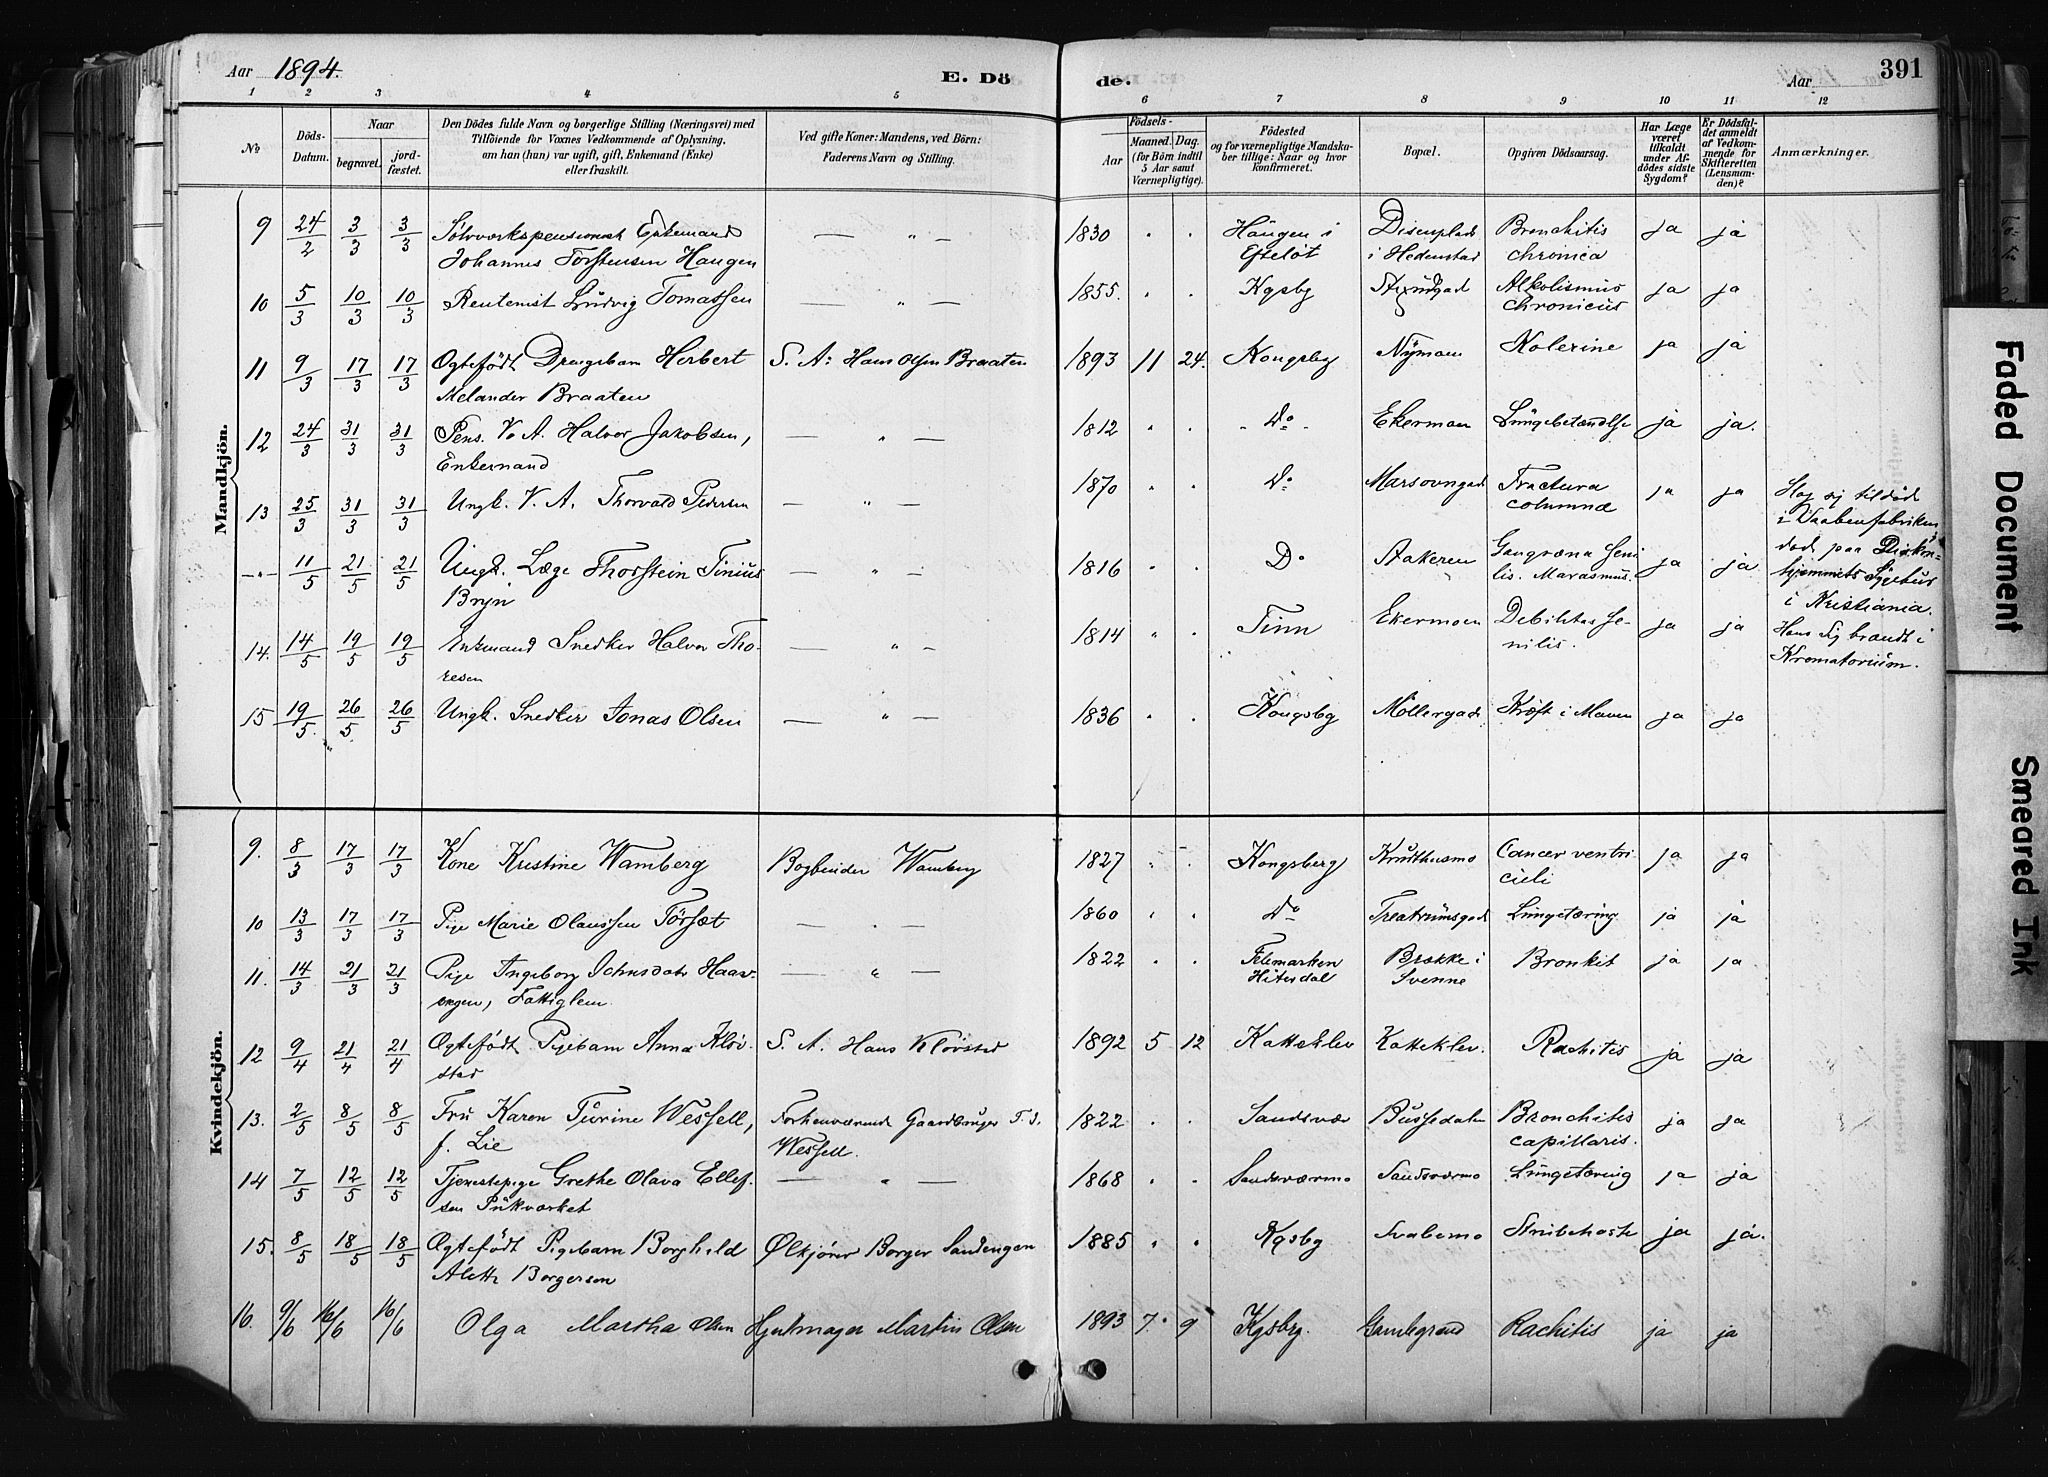 Aar 1894.
E. Döde.
Aar
391
1 2 3 4 5 6 7 8 9 10 11 12
No
Döds-Datum.
Naar
begravet.
jord-fæstet.
Den Dödes fulde Navn og borgerlige Stilling (Næringsvei) med
Tilföiende for Voxnes Vedkommende af Oplysning,
om han (hun) var ugift, gift, Enkemand (Enke)
eller fraskilt.
Ved gifte Koner: Mandens, ved Börn:
Faderens Navn og Stilling.
Födsels-
Aar
Maaned. Dag.
(for Börn indtil
5 Aar samt
Værnepligtige).
Födested
og for værnepligtige Mandska-
ber tillige: Naar og hvor
konfirmeret.
Bopæl.
Opgiven Dödsaarsag.
Har Læge
været
tilkaldt
under Af-
dödes sidste
Sygdom?
Er Dödsfal-
det anmeldt
af Vedkom-
mende for
Skifteretten
(Lensman-
den)?
Anmærkninger.
Mandkjön.
9 24/2 3/3 3/3 Sölvværkspensionist Enkemand — " — 1830 " " Haugen i Disenplads Bronchitis ja ja
Johannes Torstensen Haugen Efteløt i Hedenstad chronica
10 5/3 10/3 10/3 Rentenist Ludvig Tomassen — " — 1855. " " Kgsby Alkolismus ja ja
chronicus
11 9/3 17/3 17/3 Ægtefødt Drengebarn Herbert S. A: Hans Olsen Braaten 1893 11 24. Kongsby Nymoen Kolerine ja ja
Melander Braaten
12 24/3 31/3 31/3 Pens. V. A. Halvor Jakobsen, — " — 1812 " " Do Ekermoen Lungebetændlse ja ja.
Enkemand
13 25/3 31/3 31/3 Ungk. V. A. Thorvald Pedersen — " — 1870 " " Do Marsovngad Fractura ja ja Slog sig tildöd
columnæ i Vaabenfabriken
-"- 11/5 21/5 21/5 Ungk. Læge Thorstein Tinius — " — 1816 " " Do Aakeren Gangræna Seni ja ja död paa Diakon-
Bryn lis. Marasmus. hjemmets Sygehus
i Kristiania.
14. 14/5 19/5 19/5 Enkemand Snedker Halvor Tho- — " — 1814 " " Tinn Ekermoen Debilitas Se- ja ja Hans Lig brændt i
resen nilis. Krematorium.
15 19/5 26/5 26/5 Ungk. Snedker Jonas Olsen — " — 1836 " " Kongsbg Möllergad Kræft i Maven ja ja
Kvindekjön.
9. 8/3 17/3 17/3 Kone Kristine Wamberg Bogbinder Wamberg 1827 " " Kongsberg Kruthusmo Cancer ventri- ja ja
culi
10 13/3 17/3 17/3 Pige Marie Olaussen Törsæt — " — 1860 " " Do Treatrumsgad Lungetæring ja ja
11. 14/3 21/3 21/3 Pige Ingeborg Johnsdatr Haav- — " — 1822 " " Telemarken Brække i Bronkit ja ja
engen, Fattiglem. Hiterdal Svenne
12 9/4 21/4 21/4 Ægtefødt Pigebarn Anna Kløv- S. A. Hans Kløvstad 1892 5 12 Katteklev Katteklev. Rachitis ja ja
stad
13. 2/5 8/5 8/5 Fru Karen Turine Wessell, Forhenværende Gaardbruger T. S. 1822 " " Sandsvær Bussedalen Bronchitis ja ja
f. Lie Wessell. capillaris.
14 7/5 12/5 12/5 Tjenestepige Grethe Olava Ellef- — " — 1868 " " Sandsværmo Sandsværmo Lungetæring ja ja
sen Pukværket
15. 8/5 18/5 18/5 Ægtefødt Pigebarn Borghild Ølkjører Borger Sandengen 1885 " " Kgsbg Svabemo Strubehoste ja ja.
Aleth Borgersen
16. 9/6 16/6 16/6 Olga Martha Olsen Hjulmager Martin Olsen 1893 7. 9 Kgsbrg. Gamlegrend Rachitis ja ja
Faded Document
Smeared Ink